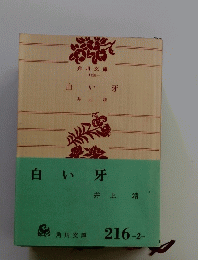 角川文庫
白い牙
井上靖
白い牙
井上靖
角川文庫 216-2-